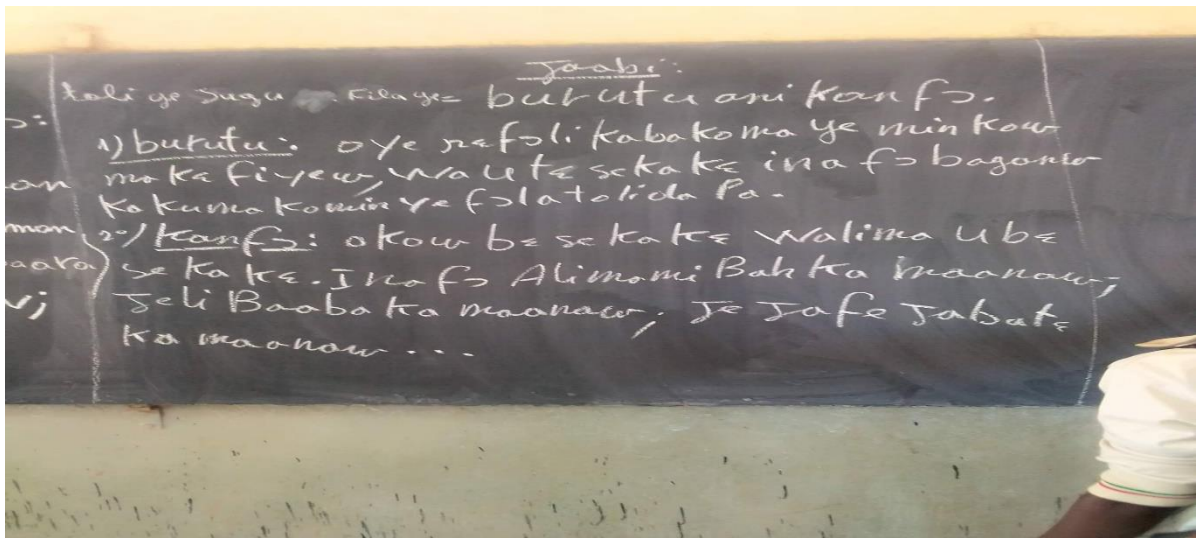 Jaabi:
tali ye sugu fila ye= burutu ani kanfɔ.
1) burutu: o ye nsɛfɔli kabakoma ye min kow
ma kɛ fiyew, wa u tɛ se ka kɛ i na fɔ baganw
ka kuma ko min ye fɔla tolida la.
2°/ kanfɔ: o kow bɛ se ka kɛ walima u bɛ
se ka kɛ. I na fɔ Alimami Bah ka maanaw;
Jeli Baaba ka maanaw; Je Jafe Jabatɛ
ka maanaw...